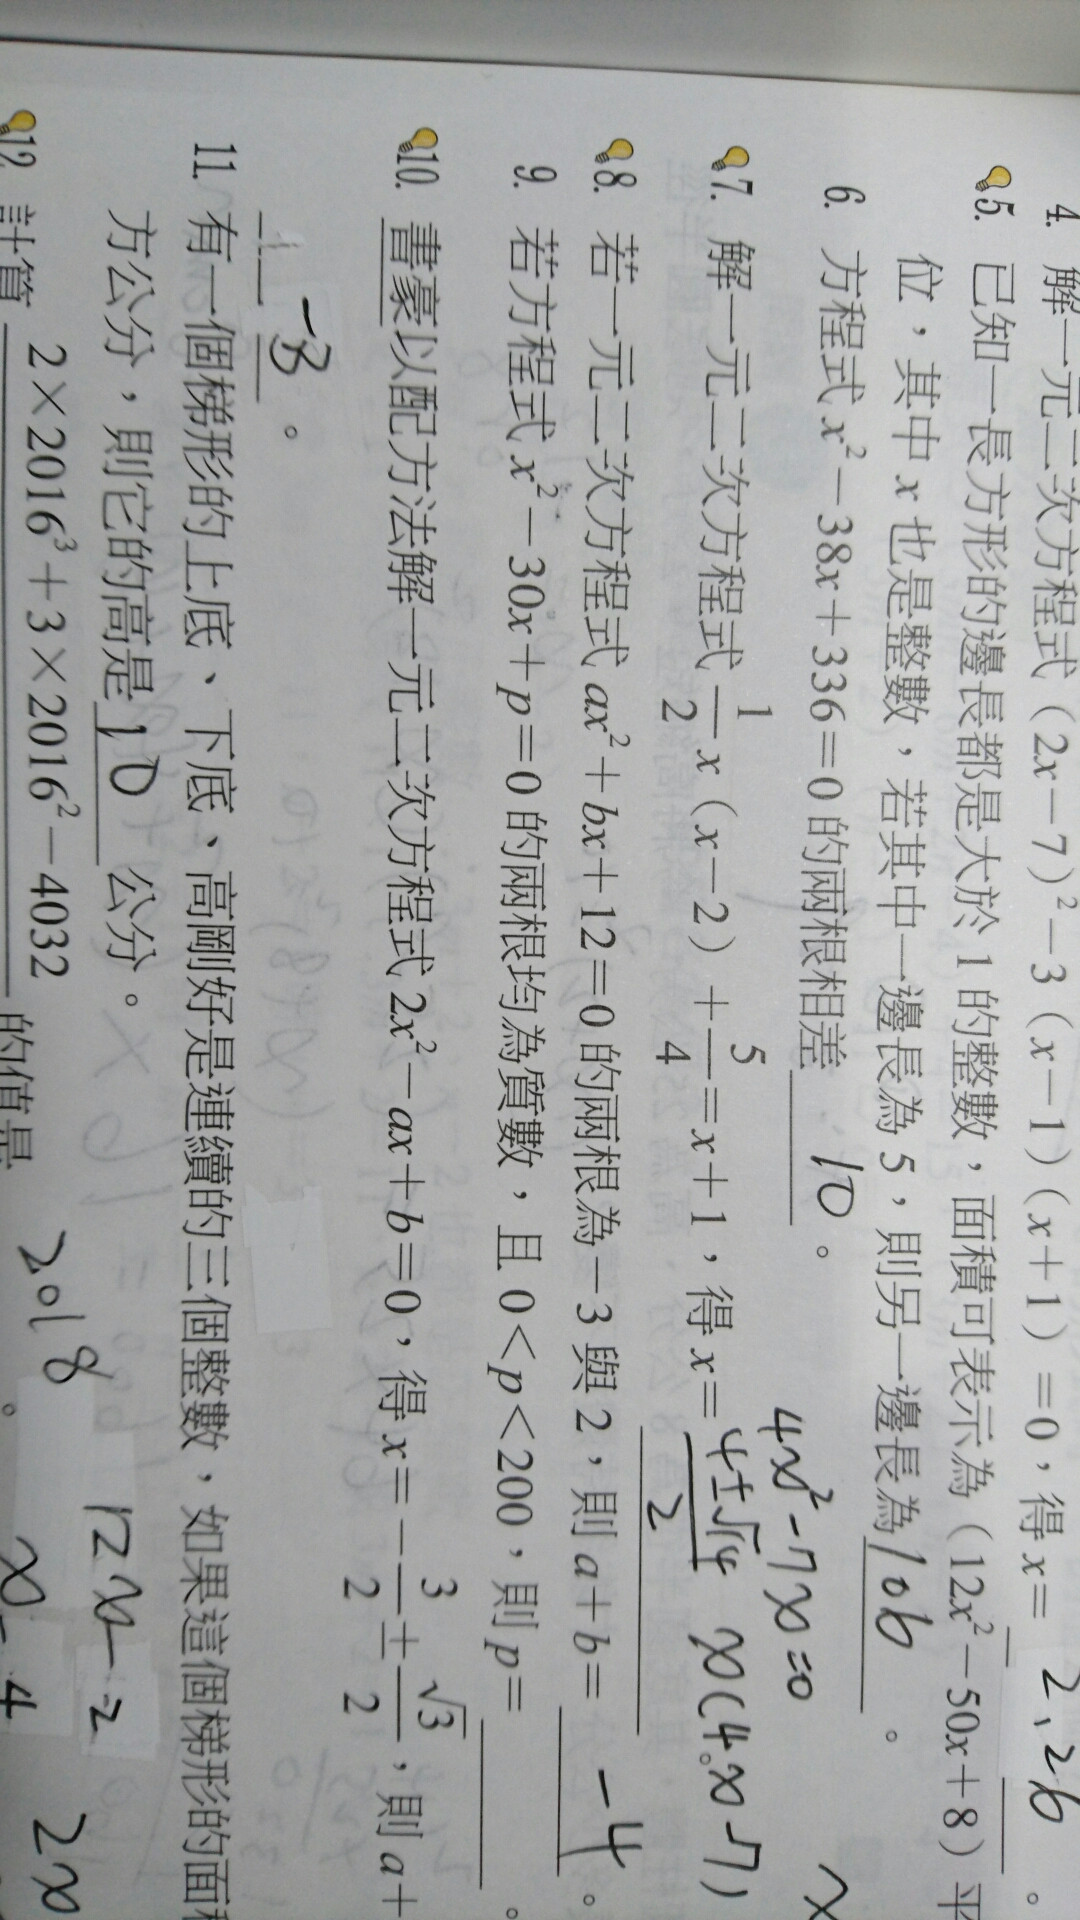 4. 解一元二次方程式（2x－7）²－3（x－1）（x＋1）＝0，得 x＝ 2、26 。
5. 已知一長方形的邊長都是大於 1 的整數，面積可表示為（12x²－50x＋8）平
位，其中 x 也是整數，若其中一邊長為 5，則另一邊長為 106 。
6. 方程式 x²－38x＋336＝0 的兩根相差 10 。
4x²-7x=0
x(4x-7)
7. 解一元二次方程式 1/2 x（x－2）＋5/4＝x＋1，得 x＝ (4±√14)/2 。
8. 若一元二次方程式 ax²＋bx＋12＝0 的兩根為－3 與 2，則 a＋b＝ -4 。
9. 若方程式 x²－30x＋p＝0 的兩根均為質數，且 0＜p＜200，則 p＝ 。
10. 書豪以配方法解一元二次方程式 2x²－ax＋b＝0，得 x＝－3/2±√3/2，則 a＋
-3 。
11. 有一個梯形的上底、下底、高剛好是連續的三個整數，如果這個梯形的面
方公分，則它的高是 10 公分。
12. 計算 2×2016³＋3×2016²－4032 的值是 。
2018
12x-2
x-4
2x